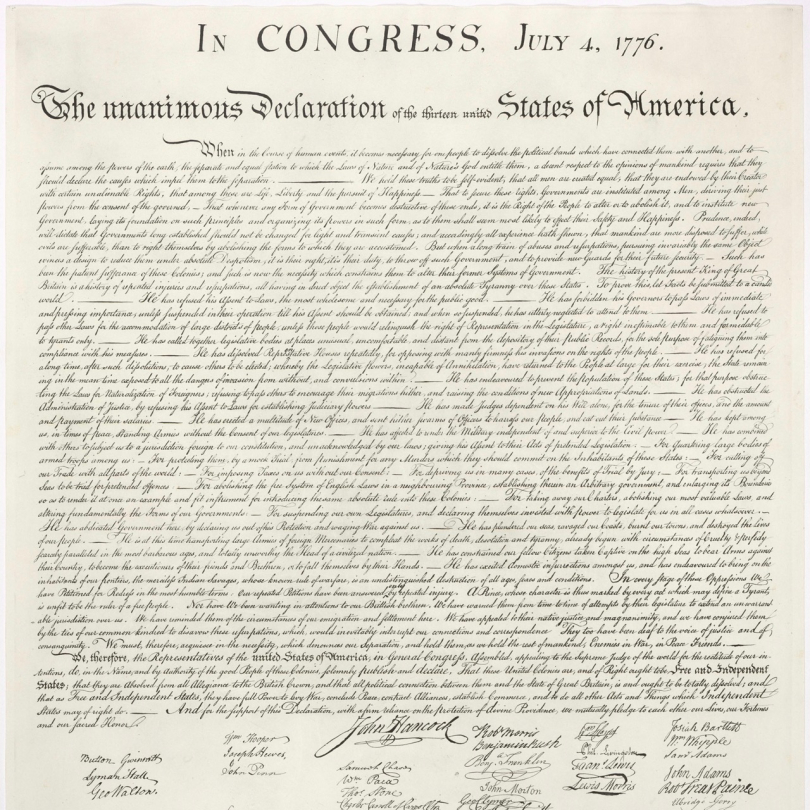 In CONGRESS, July 4, 1776.
The unanimous Declaration of the thirteen united States of America,
When in the Course of human events, it becomes necessary for one people to dissolve the political bands which have connected them with another, and to
assume among the powers of the earth, the separate and equal station to which the Laws of Nature and of Nature's God entitle them, a decent respect to the opinions of mankind requires that they
should declare the causes which impel them to the separation. — We hold these truths to be self-evident, that all men are created equal, that they are endowed by their Creator
with certain unalienable Rights, that among these are Life, Liberty and the pursuit of Happiness. — That to secure these rights, Governments are instituted among Men, deriving their just
powers from the consent of the governed, — That whenever any Form of Government becomes destructive of these ends, it is the Right of the People to alter or to abolish it, and to institute new
Government, laying its foundation on such principles and organizing its powers in such form, as to them shall seem most likely to effect their Safety and Happiness. Prudence, indeed,
will dictate that Governments long established should not be changed for light and transient causes; and accordingly all experience hath shewn, that mankind are more disposed to suffer, while
evils are sufferable, than to right themselves by abolishing the forms to which they are accustomed. But when a long train of abuses and usurpations, pursuing invariably the same Object
evinces a design to reduce them under absolute Despotism, it is their right, it is their duty, to throw off such Government, and to provide new Guards for their future security. — Such has
been the patient sufferance of these Colonies; and such is now the necessity which constrains them to alter their former Systems of Government. The history of the present King of Great
Britain is a history of repeated injuries and usurpations, all having in direct object the establishment of an absolute Tyranny over these States. To prove this, let Facts be submitted to a candid
world. — He has refused his Assent to Laws, the most wholesome and necessary for the public good. — He has forbidden his Governors to pass Laws of immediate
and pressing importance, unless suspended in their operation till his Assent should be obtained; and when so suspended, he has utterly neglected to attend to them. — He has refused to
pass other Laws for the accommodation of large districts of people, unless those people would relinquish the right of Representation in the Legislature, a right inestimable to them and formidable
to tyrants only. — He has called together legislative bodies at places unusual, uncomfortable, and distant from the depository of their Public Records, for the sole purpose of fatiguing them into
compliance with his measures. — He has dissolved Representative Houses repeatedly, for opposing with manly firmness his invasions on the rights of the people. — He has refused for
a long time, after such dissolutions, to cause others to be elected; whereby the Legislative powers, incapable of Annihilation, have returned to the People at large for their exercise; the State remain
ing in the mean time exposed to all the dangers of invasion from without, and convulsions within. — He has endeavoured to prevent the population of these States; for that purpose obstruc
ting the Laws for Naturalization of Foreigners; refusing to pass others to encourage their migrations hither, and raising the conditions of new Appropriations of Lands. — He has obstructed the
Administration of Justice, by refusing his Assent to Laws for establishing Judiciary powers. — He has made Judges dependent on his Will alone, for the tenure of their offices, and the amount
and payment of their salaries. — He has erected a multitude of New Offices, and sent hither swarms of Officers to harrass our People, and eat out their substance. — He has kept among
us, in times of peace, Standing Armies without the Consent of our legislatures. — He has affected to render the Military independent of and superior to the Civil power. — He has combined
with others to subject us to a jurisdiction foreign to our constitution, and unacknowledged by our laws; giving his Assent to their Acts of pretended Legislation: — For Quartering large bodies of
armed troops among us: — For protecting them, by a mock Trial, from punishment for any Murders which they should commit on the Inhabitants of these States: — For cutting off
our Trade with all parts of the world: — For imposing Taxes on us without our Consent: — For depriving us in many cases, of the benefits of Trial by Jury: — For transporting us beyond
Seas to be tried for pretended offences: — For abolishing the free System of English Laws in a neighbouring Province, establishing therein an Arbitrary government, and enlarging its Boundaries
so as to render it at once an example and fit instrument for introducing the same absolute rule into these Colonies: — For taking away our Charters, abolishing our most valuable Laws, and
altering fundamentally the Forms of our Governments: — For suspending our own Legislatures, and declaring themselves invested with power to legislate for us in all cases whatsoever. —
He has abdicated Government here, by declaring us out of his Protection and waging War against us. — He has plundered our seas, ravaged our Coasts, burnt our towns, and destroyed the lives
of our people. — He is at this time transporting large Armies of foreign Mercenaries to compleat the works of death, desolation and tyranny, already begun with circumstances of Cruelty & perfidy
scarcely paralleled in the most barbarous ages, and totally unworthy the Head of a civilized nation. — He has constrained our fellow Citizens taken Captive on the high Seas to bear Arms against
their Country, to become the executioners of their friends and Brethren, or to fall themselves by their Hands. — He has excited domestic insurrections amongst us, and has endeavoured to bring on the
inhabitants of our frontiers, the merciless Indian Savages, whose known rule of warfare, is an undistinguished destruction of all ages, sexes and conditions. In every stage of these Oppressions We
have Petitioned for Redress in the most humble terms: Our repeated Petitions have been answered by repeated injury. A Prince, whose character is thus marked by every act which may define a Tyrant,
is unfit to be the ruler of a free people. Nor have We been wanting in attentions to our Brittish brethren. We have warned them from time to time of attempts by their legislature to extend an unwarrant
able jurisdiction over us. We have reminded them of the circumstances of our emigration and settlement here. We have appealed to their native justice and magnanimity, and we have conjured them
by the ties of our common kindred to disavow these usurpations, which, would inevitably interrupt our connections and correspondence. They too have been deaf to the voice of justice and of
consanguinity. We must, therefore, acquiesce in the necessity, which denounces our Separation, and hold them, as we hold the rest of mankind, Enemies in War, in Peace Friends. —
We, therefore, the Representatives of the united States of America, in General Congress, Assembled, appealing to the Supreme Judge of the world for the rectitude of our in
tentions, do, in the Name, and by Authority of the good People of these Colonies, solemnly publish and declare, That these United Colonies are, and of Right ought to be Free and Independent
States; that they are Absolved from all Allegiance to the British Crown, and that all political connection between them and the State of Great Britain, is and ought to be totally dissolved; and
that as Free and Independent States, they have full Power to levy War, conclude Peace, contract Alliances, establish Commerce, and to do all other Acts and Things which Independent
States may of right do. — And for the support of this Declaration, with a firm reliance on the Protection of divine Providence, we mutually pledge to each other our Lives, our Fortunes
and our sacred Honor.
John Hancock
Button Gwinnett
Lyman Hall
Geo Walton.
Wm Hooper
Joseph Hewes,
John Penn
Samuel Chase
Wm Paca
Thos Stone
Charles Carroll of Carrollton
Robt Morris
Benjamin Rush
Benj. Franklin
John Morton
Geo Clymer
Wm Floyd
Phil. Livingston
Frans Lewis
Lewis Morris
Josiah Bartlett
Wm Whipple
Saml Adams
John Adams
Robt Treat Paine
Elbridge Gerry